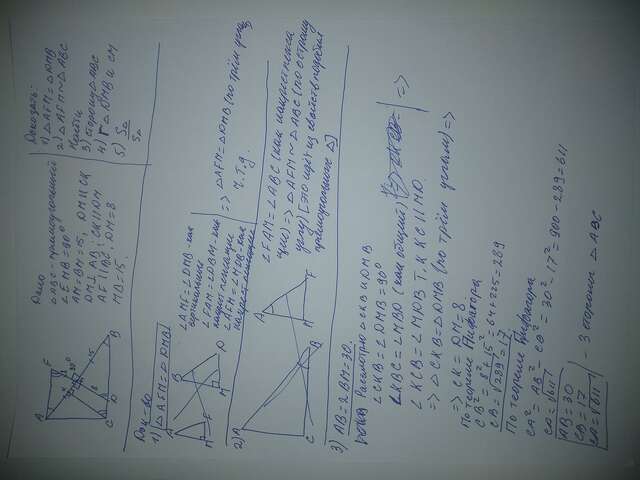 Дано
△ABC - прямоугольный
∠EMB = 90°
AM = BM = 15, DM || CK
DM ⊥ AB; CK || DM
AF || BC; DM = 8
MB = 15.
Доказать:
1) △AFM = △DMB
2) △AFM ~ △ABC
Найти
3) стороны △ABC
4) r △DMB и CM
5)
Док-во
1) △AFM = △DMB
∠AMF = ∠DMB - как
вертикальные
∠FAM = ∠DBM - как
накрест лежащие
∠AFM = ∠MDB - как
накрест лежащие
=> △AFM = △DMB (по трём углам)
ч.т.д.
2)
∠FAM = ∠ABC (как накрест лежащие) => △AFM ~ △ABC (по острому
углу) [это идёт из свойств подобия
прямоугольного △]
3) AB = 2BM = 30.
Рассмотрю △CKB и DMB
∠CKB = ∠DMB = 90°
∠KBC = ∠MBD (как общий)
∠KCB = ∠MDB т.к. KC || MD.
=>
=> △CKB = △DMB (по трём углам) =>
=> CK = DM = 8
По теореме Пифагора
CB² = 8² + 15² = 64 + 225 = 289
CB = √289 = 17
По теореме Пифагора
CA² = AB² - CB² = 30² - 17² = 900 - 289 = 611
CA = √611
AB = 30
CB = 17
CA = √611
- 3 стороны △ABC